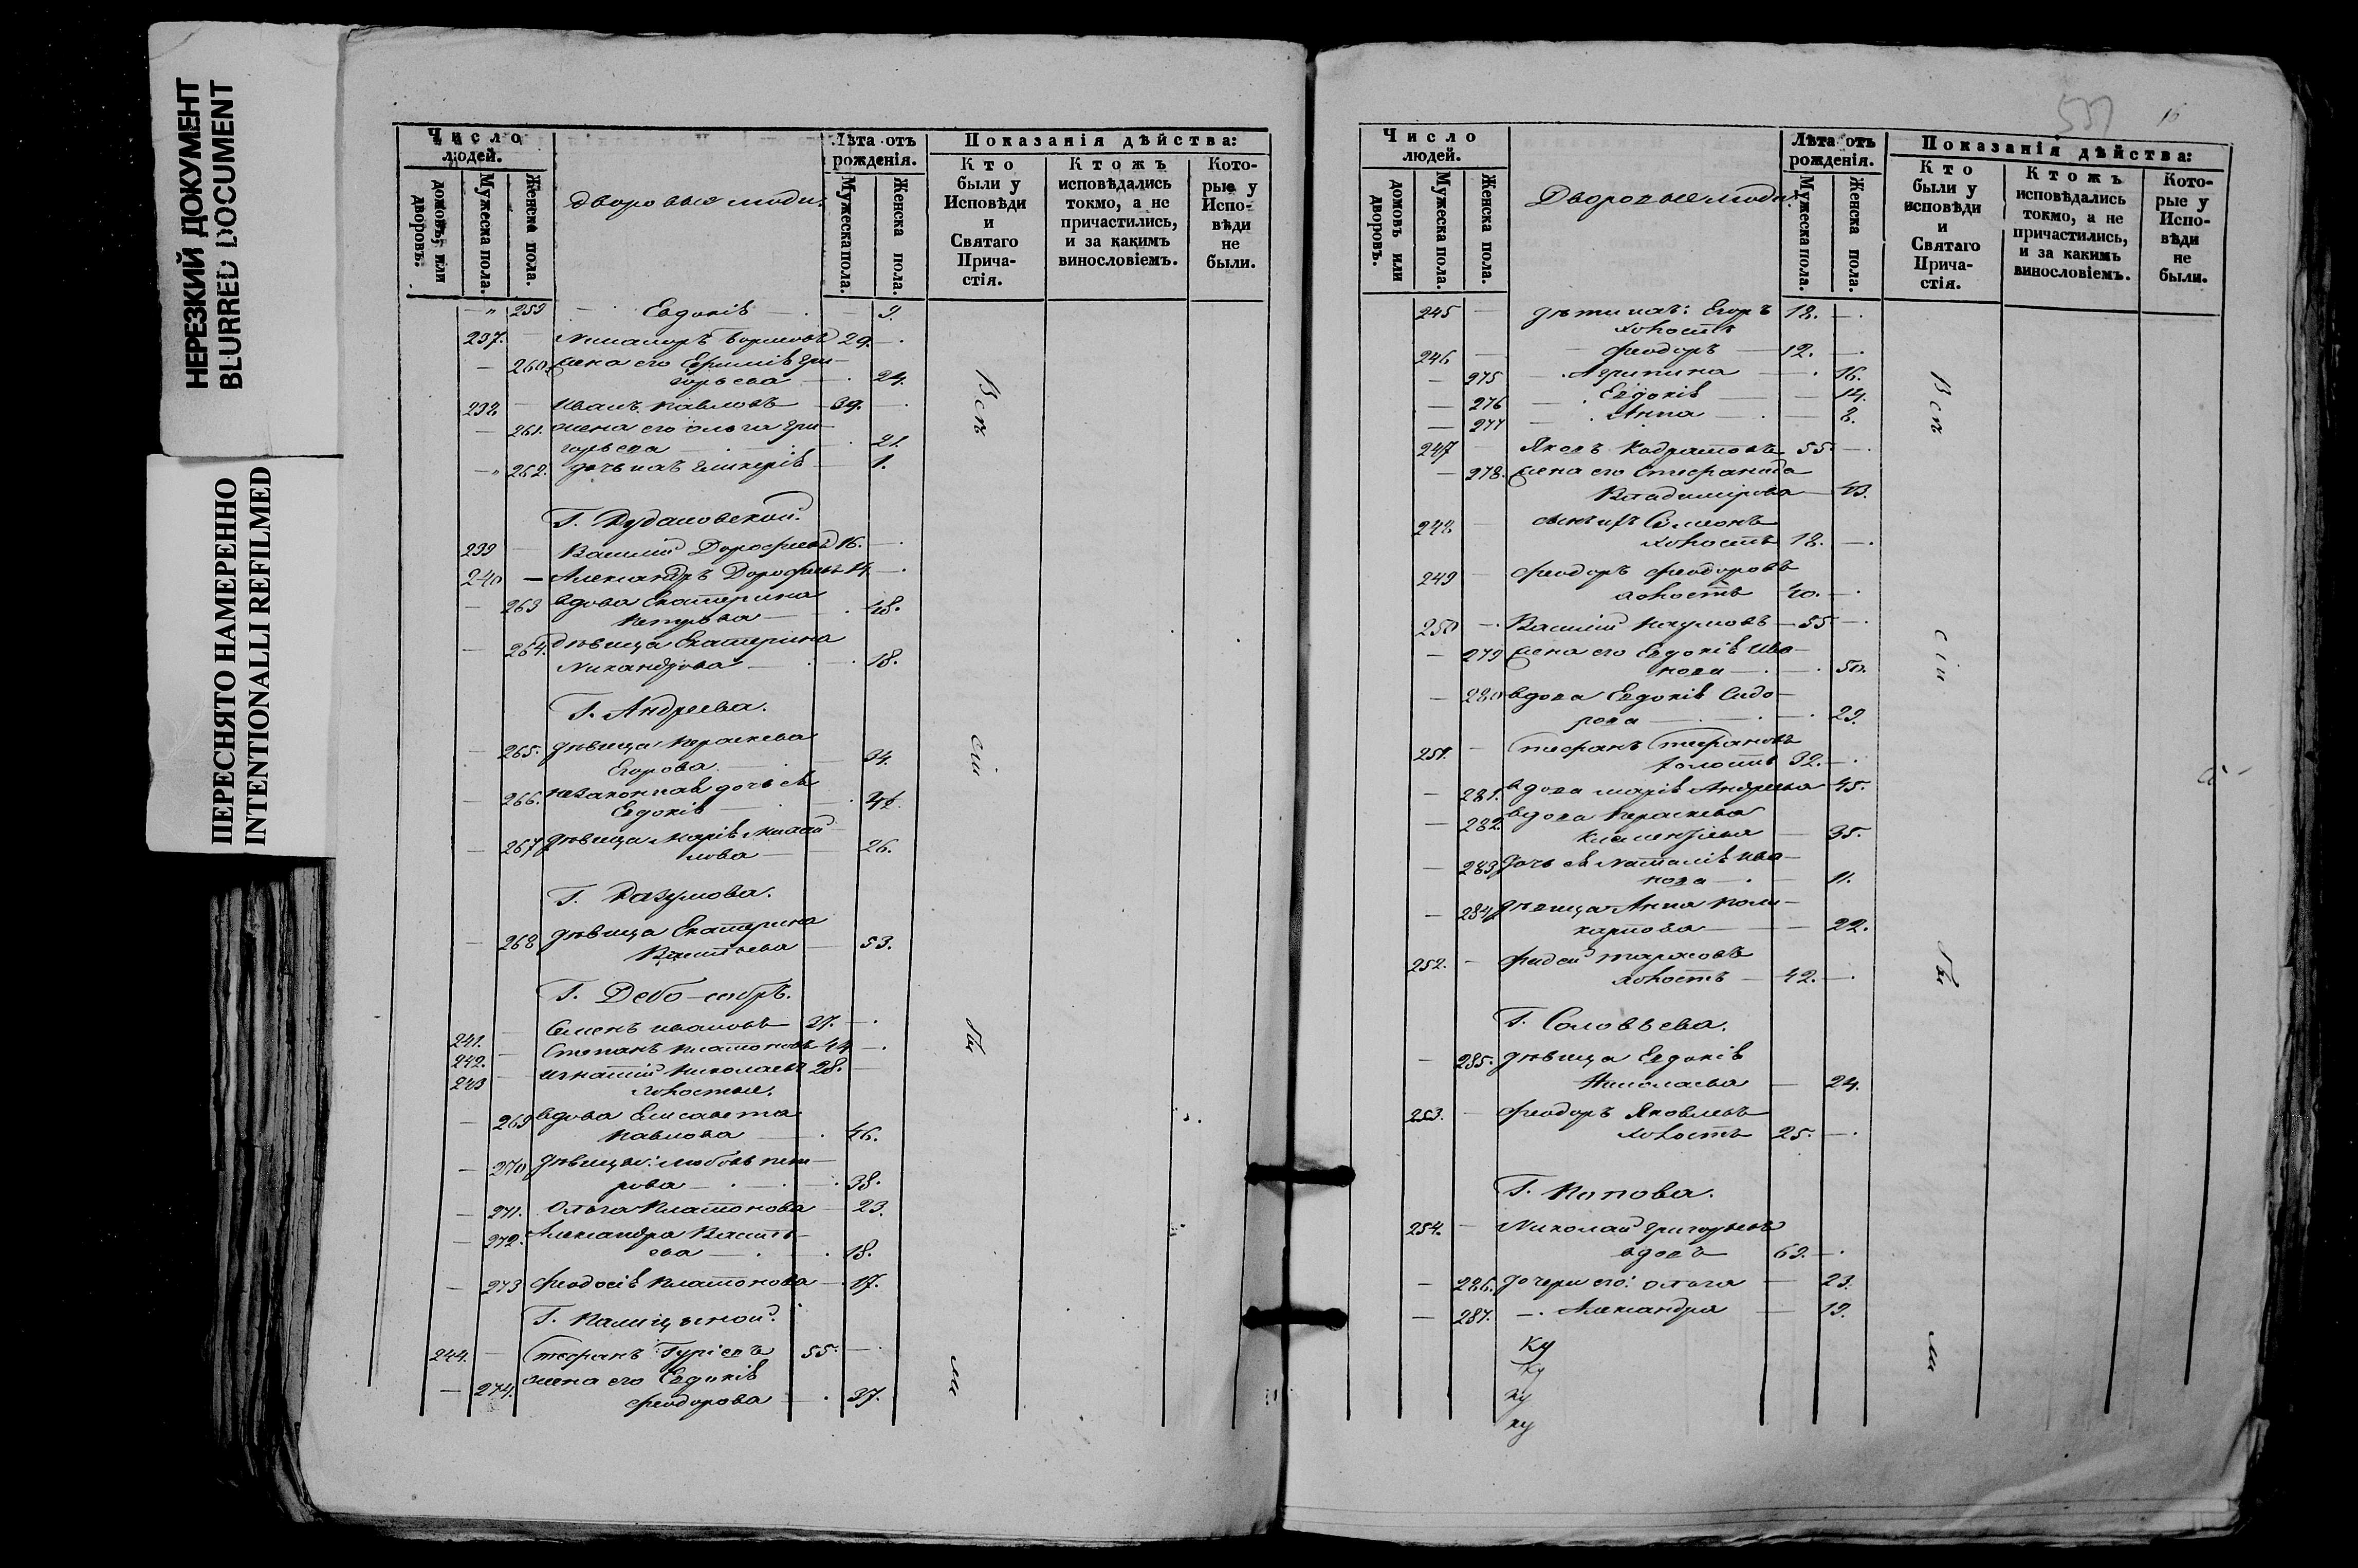 НЕРЕЗКИЙ ДОКУМЕНТ
BLURRED DOCUMENT
ПЕРЕСНЯТО НАМЕРЕННО
INTENTIONALLI REFILMED
Число людей.
домовъ, или дворовъ.
Мужеска пола.
Женска пола.
Дворовыя люди.
Лѣта отъ рожденія.
Мужеска пола.
Женска пола.
Показанія дѣйства:
Кто были у Исповѣди и Святаго Прича-стія.
Ктожъ исповѣдались токмо, а не причастились, и за какимъ винословіемъ.
Кото-рые у Испо-вѣди не были.
259 Евдокія 9.
237. Борисовъ 29.
260. жена его Гри-
горьева 24.
238 Иванъ Павловъ 39.
261. жена его Ольга Гри-
горьева 21.
262. дочь ихъ Гликерія 1.
Г.
239 Василій Дорофеевъ 16.
240 Александръ Дорофеевъ 14
263 вдова Екатерина
Петрова 48.
264. дѣвица Екатерина
Никандрова 18.
Г. Андреева.
265. дѣвица Параскева
Егорова 34.
266. незаконная дочь ея
Евдокія
267 дѣвица Марія Михай-
лова 26.
Г. Разумова.
268 дѣвица Екатерина
Васильева 53.
Г.
241. Семенъ Ивановъ 37.
242. Степанъ Платоновъ 44
243 Игнатій Николаевъ 28.
холостые.
269 вдова Елисавета
Павлова 46.
270 дѣвицы: Любовь Пет-
рова 38.
271. Ольга Платонова 23.
272. Александра Василь-
ева 18.
273 Феодосія Платонова 17.
Г.
244. Стефанъ Гурієвъ 55.
274. жена его Евдокія
Феодорова 37.
Всѣ
сіи
бы
ли
537
16
Число людей.
домовъ или дворовъ.
Мужеска пола.
Женска пола.
Дворовые люди.
Лѣта отъ рожденія.
Мужеска пола.
Женска пола.
Показанія дѣйства:
Кто были у исповѣди и Святаго Прича-стія.
Ктожъ исповѣдались токмо, а не причастились, и за какимъ винословіемъ.
Кото-рые у Испо-вѣди не были.
245 дѣти ихъ: Егоръ 18.
холостъ
246 Феодоръ 12.
275 Агрипина 16.
276 Евдокія 14.
277 Анна 8.
247 Яковъ Кодратовъ 55.
278. жена его Стефанида
Владимірова 43.
248 сынъ ихъ Симеонъ
холостъ 18.
249 Феодоръ Феодоровъ
холостъ 40.
250 Василій Наумовъ 55
279 жена его Евдокія Ива-
нова 50.
280 вдова Евдокія Сидо-
рова 29.
251. Стефанъ Стефановъ
холостъ 32.
281. вдова Марія Андреева 45.
282. вдова Параскева
Климентіева 35.
283 дочь ея Наталія Ива-
нова 11.
284 дѣвица Анна Поли-
карпова 22.
252. Фадей Тарасовъ
холостъ 42.
Г. Соловьева.
285. дѣвица Евдокія
Николаева 24.
253. Феодоръ Яковлевъ
холостъ 25.
Г. Попова.
254. Николай Григорьевъ
вдовъ 69.
286. дочери его: Ольга 23.
287. Александра 19.
Всѣ
сіи
бы
ли